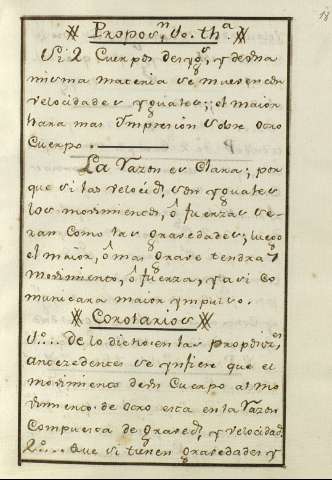 18
Propos.n 3o. th.a
Si 2 Cuerpos desygs. y de una
misma materia se mueven con
velocidades yguales; el maior
hara mas Ympresion sobre otro
Cuerpo.
La razon es Clara; por
que si las velocids. son yguales
los movimientos, ô fuerzas se-
ran como las gravedades, luego
el maior, ô mas grave tendra
movimiento, ô fuerza, y asi co
municara maior ympulso.
Corolarios
1o... De lo dicho en las proposizs.
antecedentes se ynfiere que el
movimiento de un Cuerpo al mo
vimiento de otro esta en la razon
Compuesta de graved. y velocidad.
2o... Que si tienen gravedades y